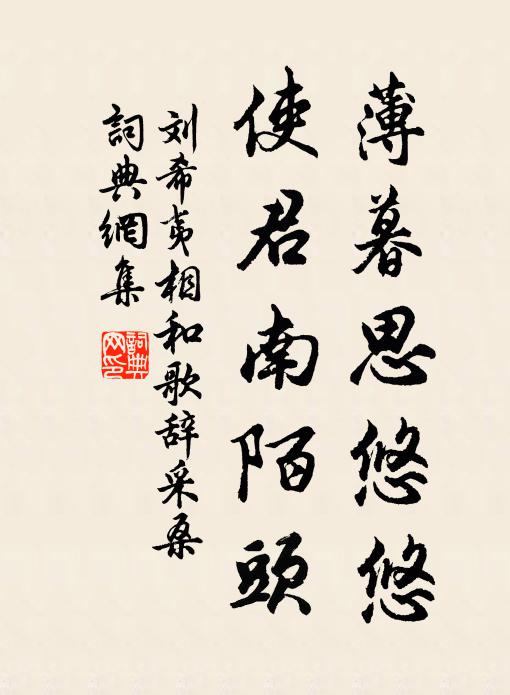 薄暮思悠悠
使君南陌頭
刘希夷相和歌辞采桑
詞典網集
詞典网印